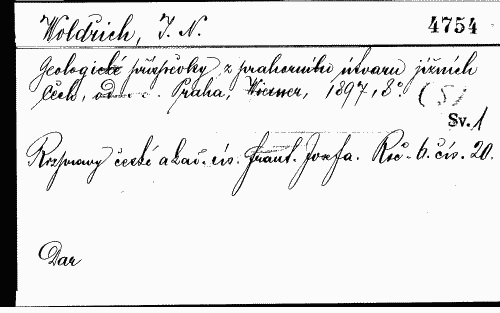 Woldřich, J. N. 4754
Geologické příspěvky z prahorního útvaru jižních
Čech, Praha, Wiesner, 1897, 8°. (5)
Sv. 1
Rozpravy české akad. cís. Frant. Josefa. Roč. 6. čís. 20.
Dar